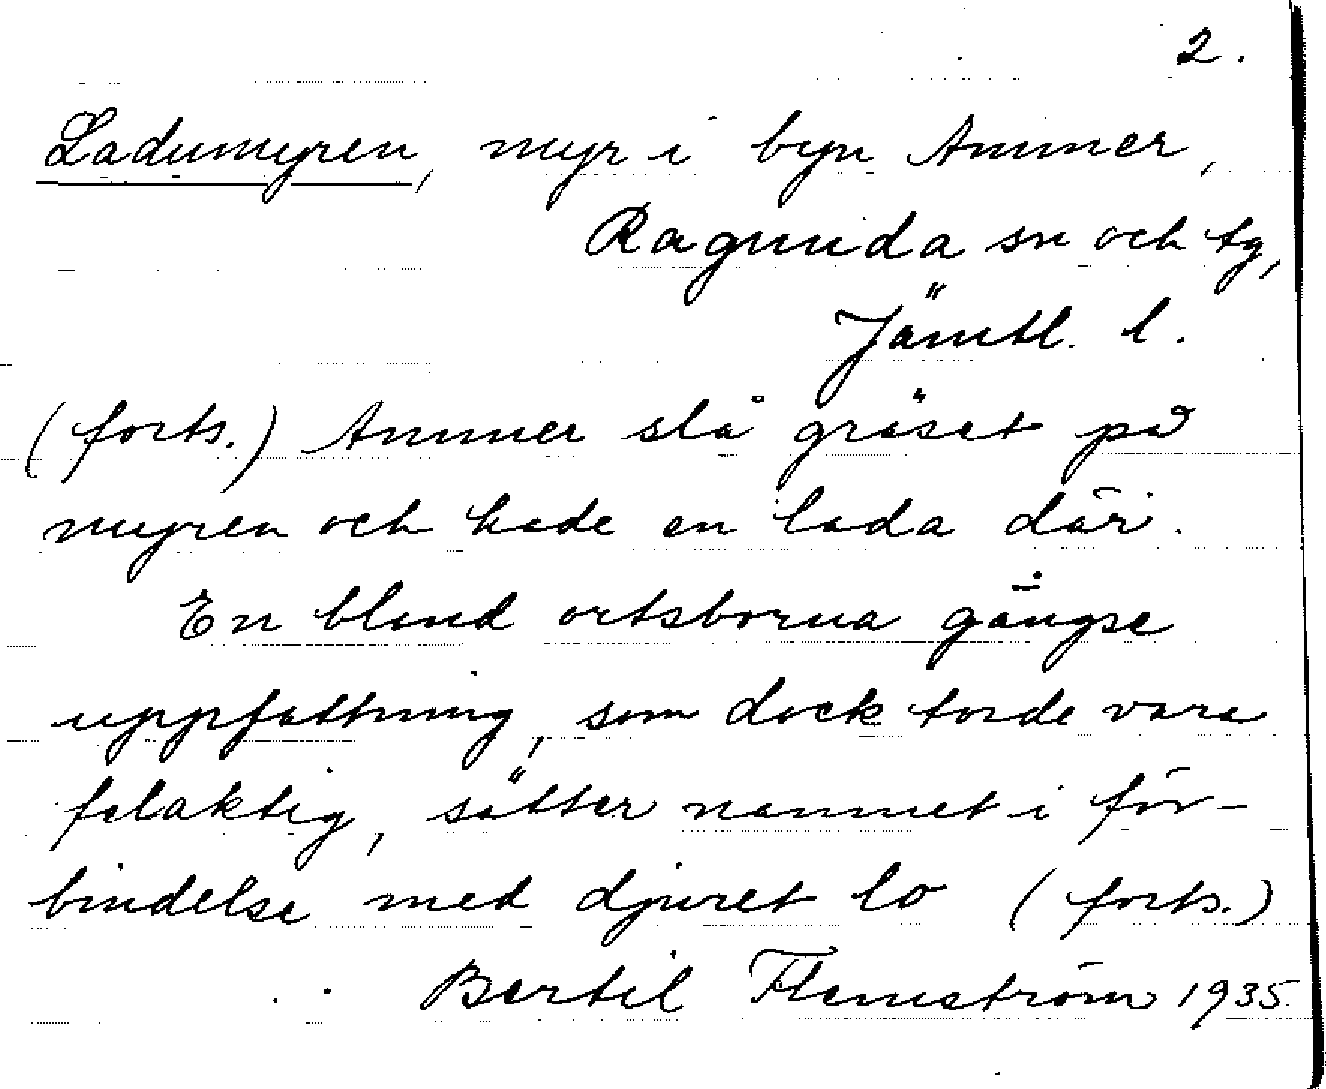 2.
Ladumyren, myr i byn Ammer,
Ragunda sn och tg,
Jämtl. l.
(forts.) Ammer slå gräset på
myren och hade en lada där.
En bland ortsborna gängse
uppfattning, som dock torde vara
felaktig, sätter namnet i för-
bindelse med djuret lo (forts.)
Bertil Flemström 1935.